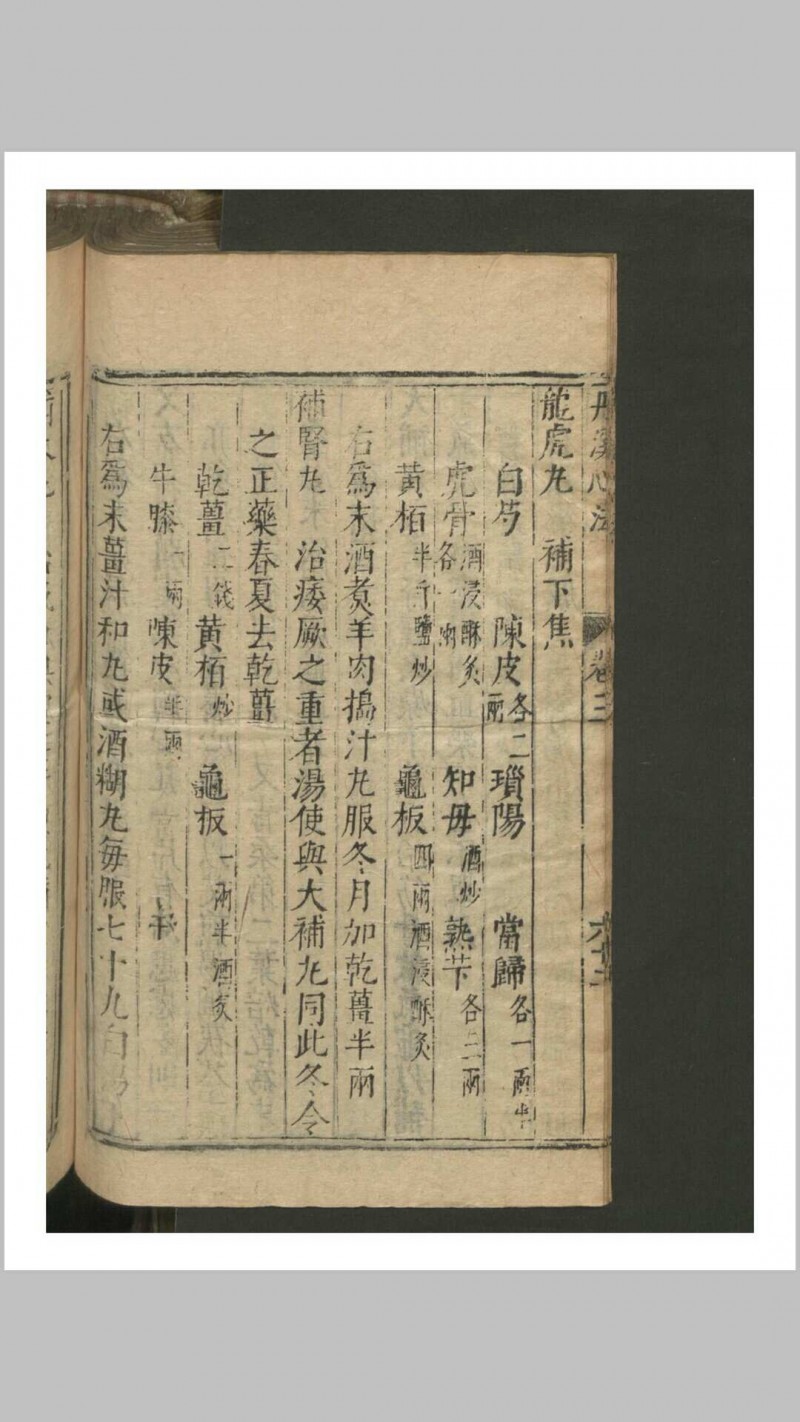 丹溪心法 卷三
龍虎丸 補下焦
白芍 陳皮各二兩 瑣陽 當歸各一兩半
虎骨酒浸酥炙各一兩 知母酒炒 熟芐各二兩
黃栢半斤鹽炒 龜板四兩酒浸酥炙
右爲末酒煮羊肉搗汁丸服冬月加乾薑半兩
補腎丸 治痿厥之重者湯使與大補丸同此冬令
之正藥春夏去乾薑
乾薑二錢 黃栢炒 龜板一兩半酒炙
牛膝一兩 陳皮半兩
右爲末薑汁和丸或酒糊丸每服七十丸白湯